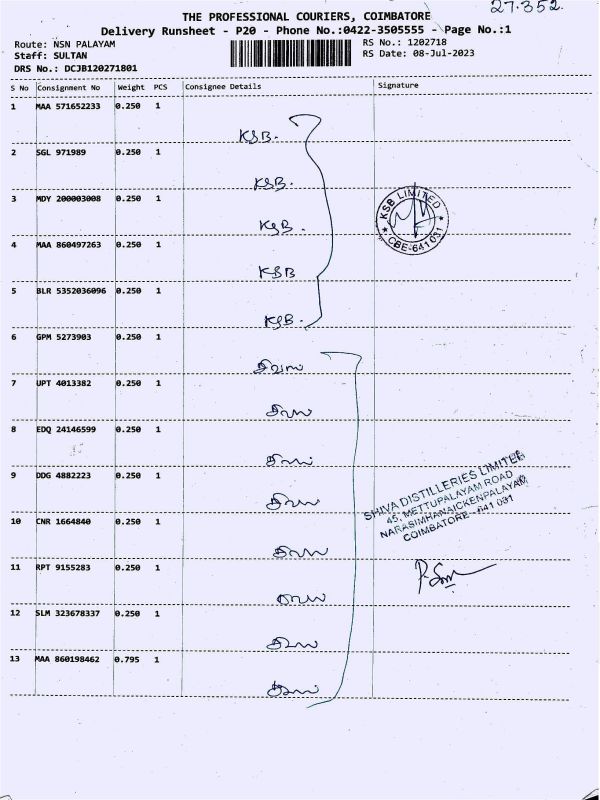 27.352
THE PROFESSIONAL COURIERS, COIMBATORE
Delivery Runsheet - P20 - Phone No.:0422-3505555 - Page No.:1
Route: NSN PALAYAM
Staff: SULTAN
DRS No.: DCJB120271801
RS No.: 1202718
RS Date: 08-Jul-2023
S No Consignment No Weight PCS Consignee Details Signature
1 MAA 571652233 0.250 1
KSB.
2 SGL 971989 0.250 1
KSB.
3 MDY 200003008 0.250 1
KSB.
4 MAA 860497263 0.250 1
KSB
5 BLR 5352036096 0.250 1
KSB.
KSB LIMITED
CBE-641 031
6 GPM 5273903 0.250 1
சிவா
7 UPT 4013382 0.250 1
சிவா
8 EDQ 24146599 0.250 1
சிவா
9 DDG 4882223 0.250 1
சிவா
10 CNR 1664840 0.250 1
சிவா
11 RPT 9155283 0.250 1
சிவா
12 SLM 323678337 0.250 1
சிவா
13 MAA 860198462 0.795 1
சிவா
SHIVA DISTILLERIES LIMITED
45, METTUPALAYAM ROAD
NARASIMHANAICKENPALAYAM
COIMBATORE - 641 031